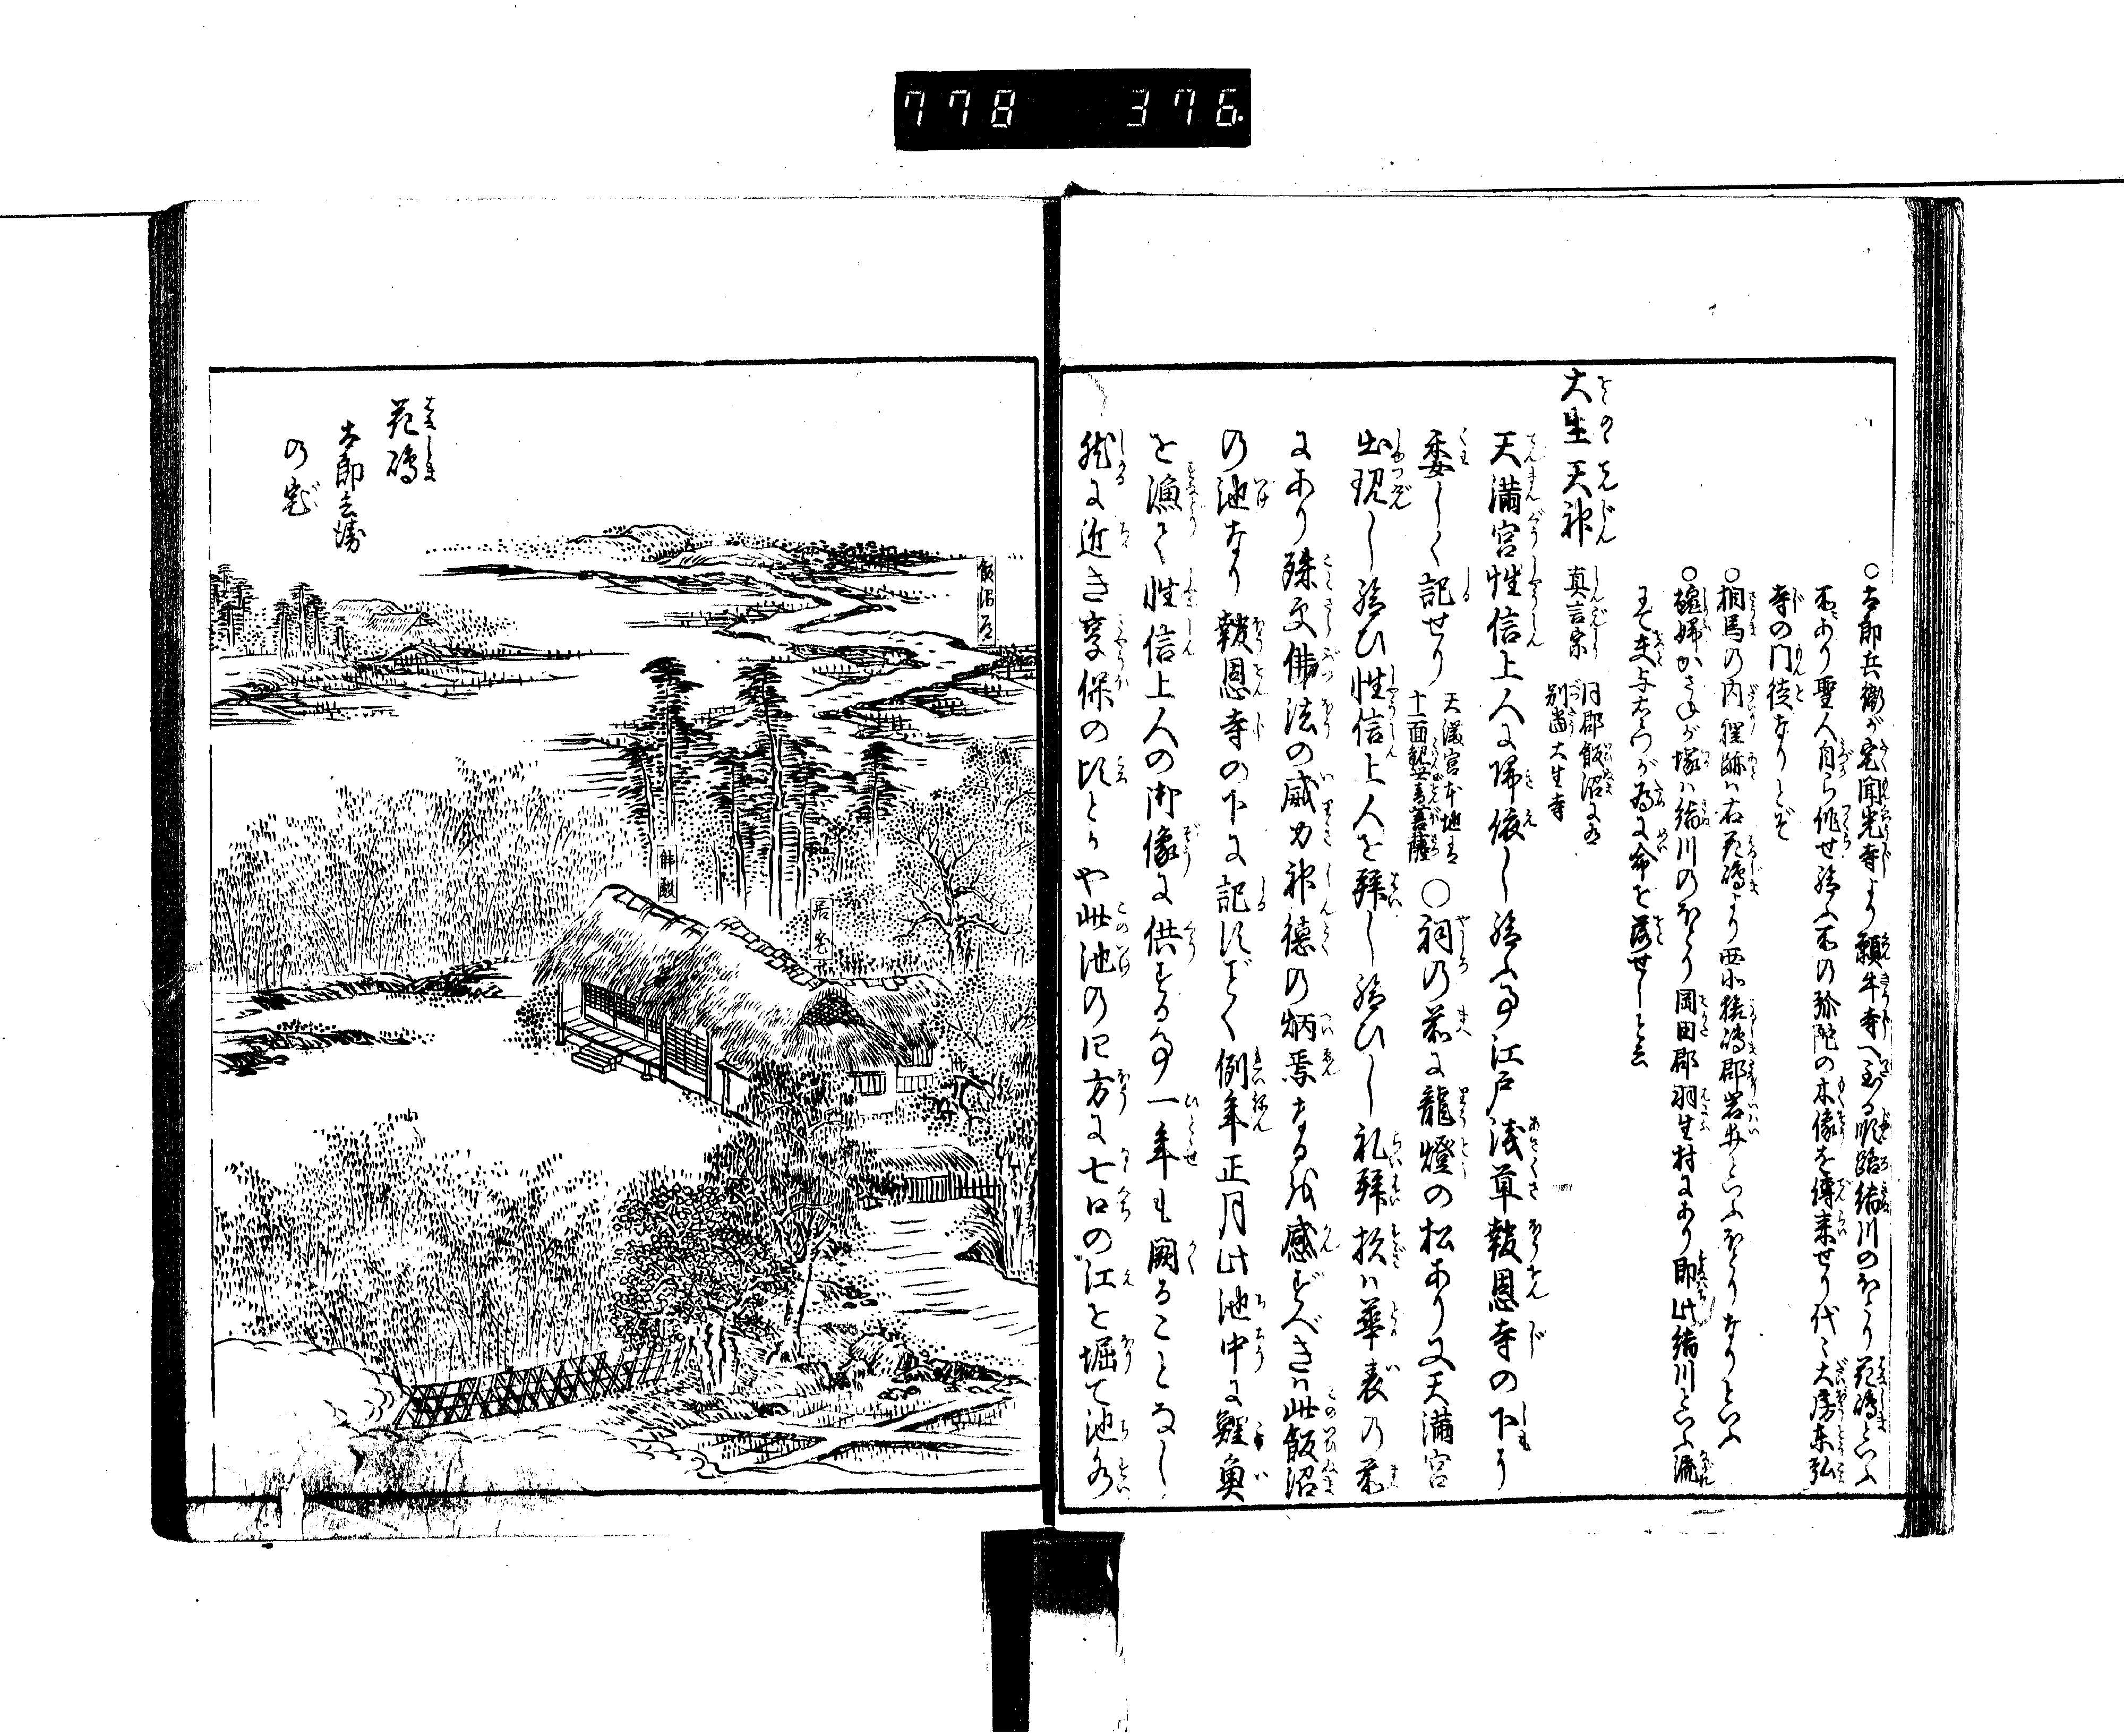 778 376
○太郎兵衛が宅聞光寺より願牛寺へ至る順路絹川のほとり花嶋といふ
所にあり聖人自ら作せ給ふ所の弥陀の木像を傳来せり代々大房東弘
寺の門徒なりとぞ
○相馬の内裡跡ハ右花嶋より西北猿嶋郡岩井といふほとりなりといふ
○醜婦かさねが塚ハ絹川のほとり岡田郡羽生村にあり即此絹川といふ流
にて夫与右衛門が為に命を落せしと云
大生天神 真言宗 同郡飯沼に有
別當大生寺
天満宮性信上人に帰依し給ふ事江戸浅草報恩寺の下に
委しく記せり 天満宮本地は
十一面観世音菩薩 ○祠の前に龍燈の松あり又天満宮
出現し給ひ性信上人を拜し給ひし礼拜杉ハ華表の前
にあり殊更佛法の威力神徳の炳焉なる故感ずべきハ此飯沼
の池なり報恩寺の下に記すごく例年正月此池中に鯉魚
を漁て性信上人の御像に供する事一年も闕ることなし
然に近き享保の頃とかや此池の四方に七口の江を堀て池水
花嶋
太郎兵衛
の宅
飯沼
佛殿
居宅